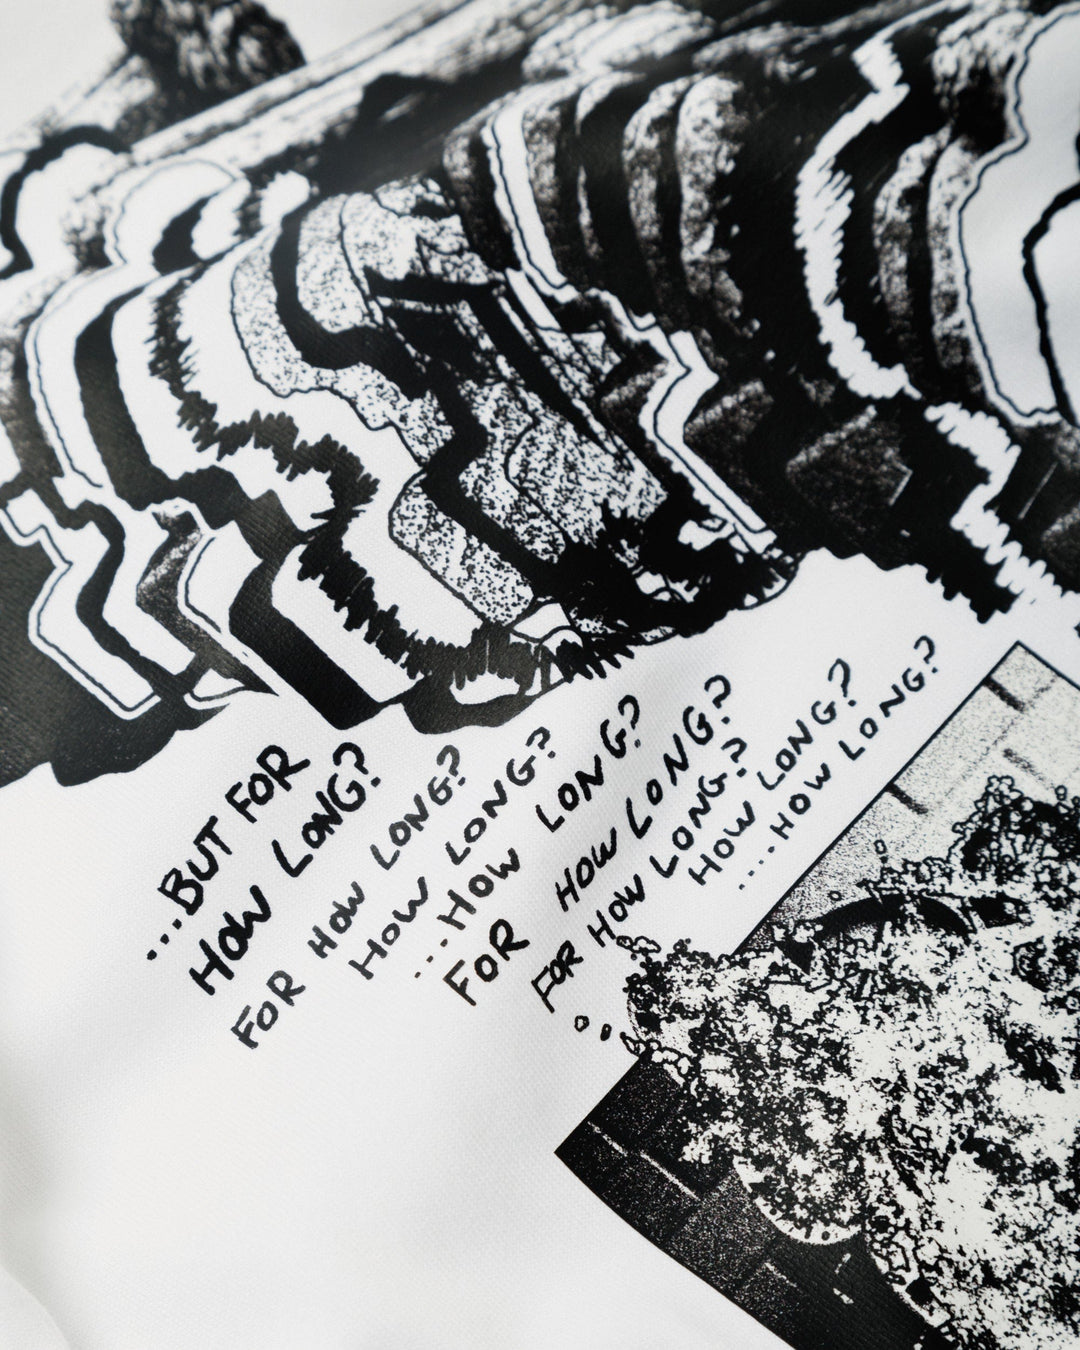 ...BUT FOR
HOW LONG?
FOR HOW LONG?
HOW LONG?
...HOW LONG?
FOR HOW LONG?
FOR HOW LONG?
HOW LONG?
....HOW LONG?